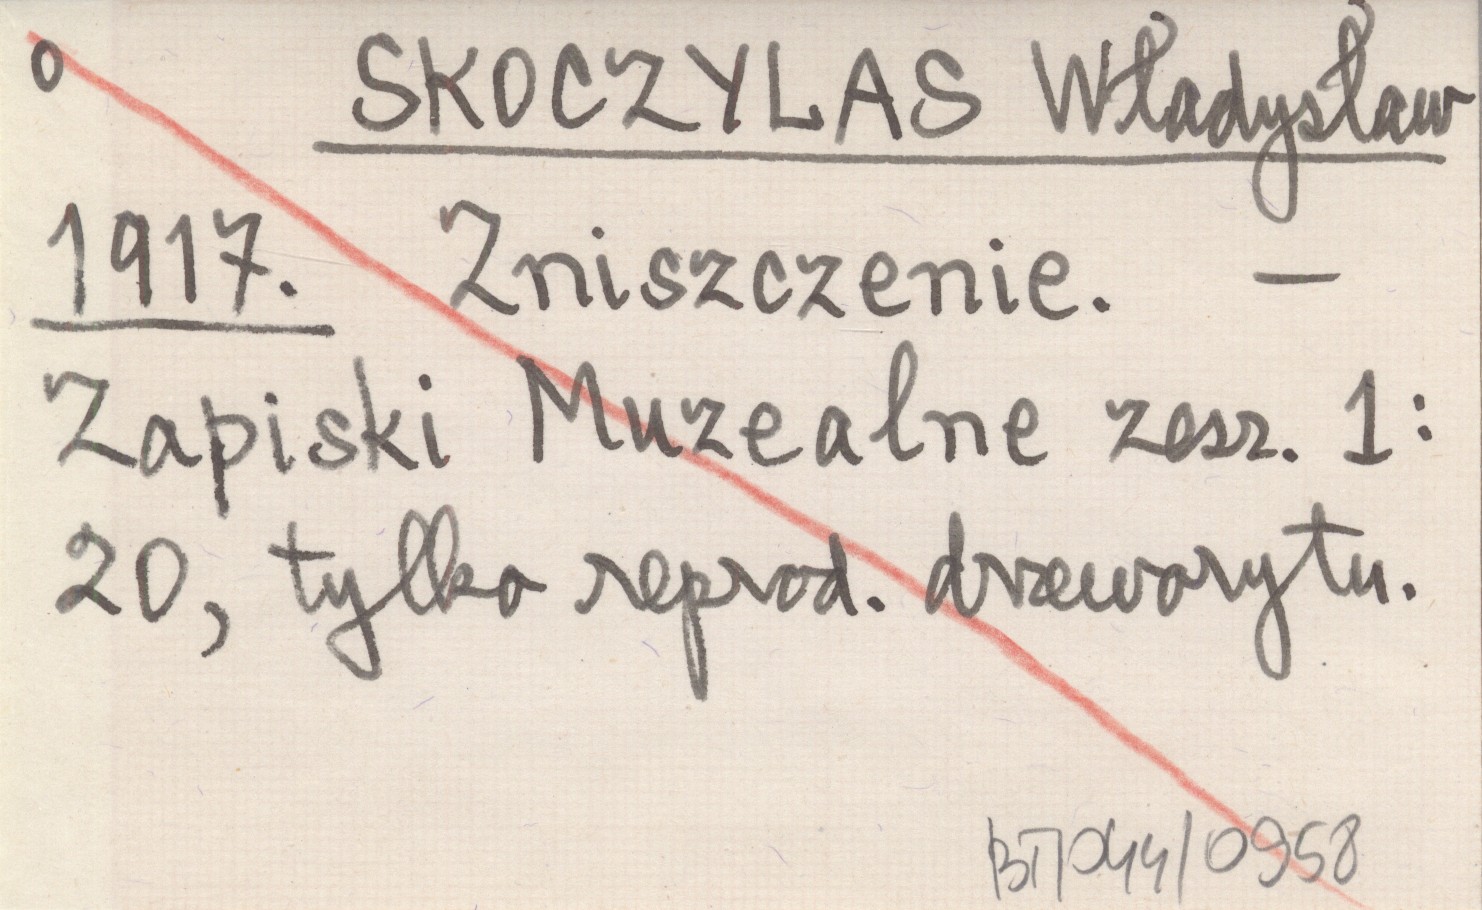 o SKOCZYLAS Władysław
1917. Zniszczenie. —
Zapiski Muzealne zesz. 1:
20, tylko reprod. drzeworytu.
BT/044/0958